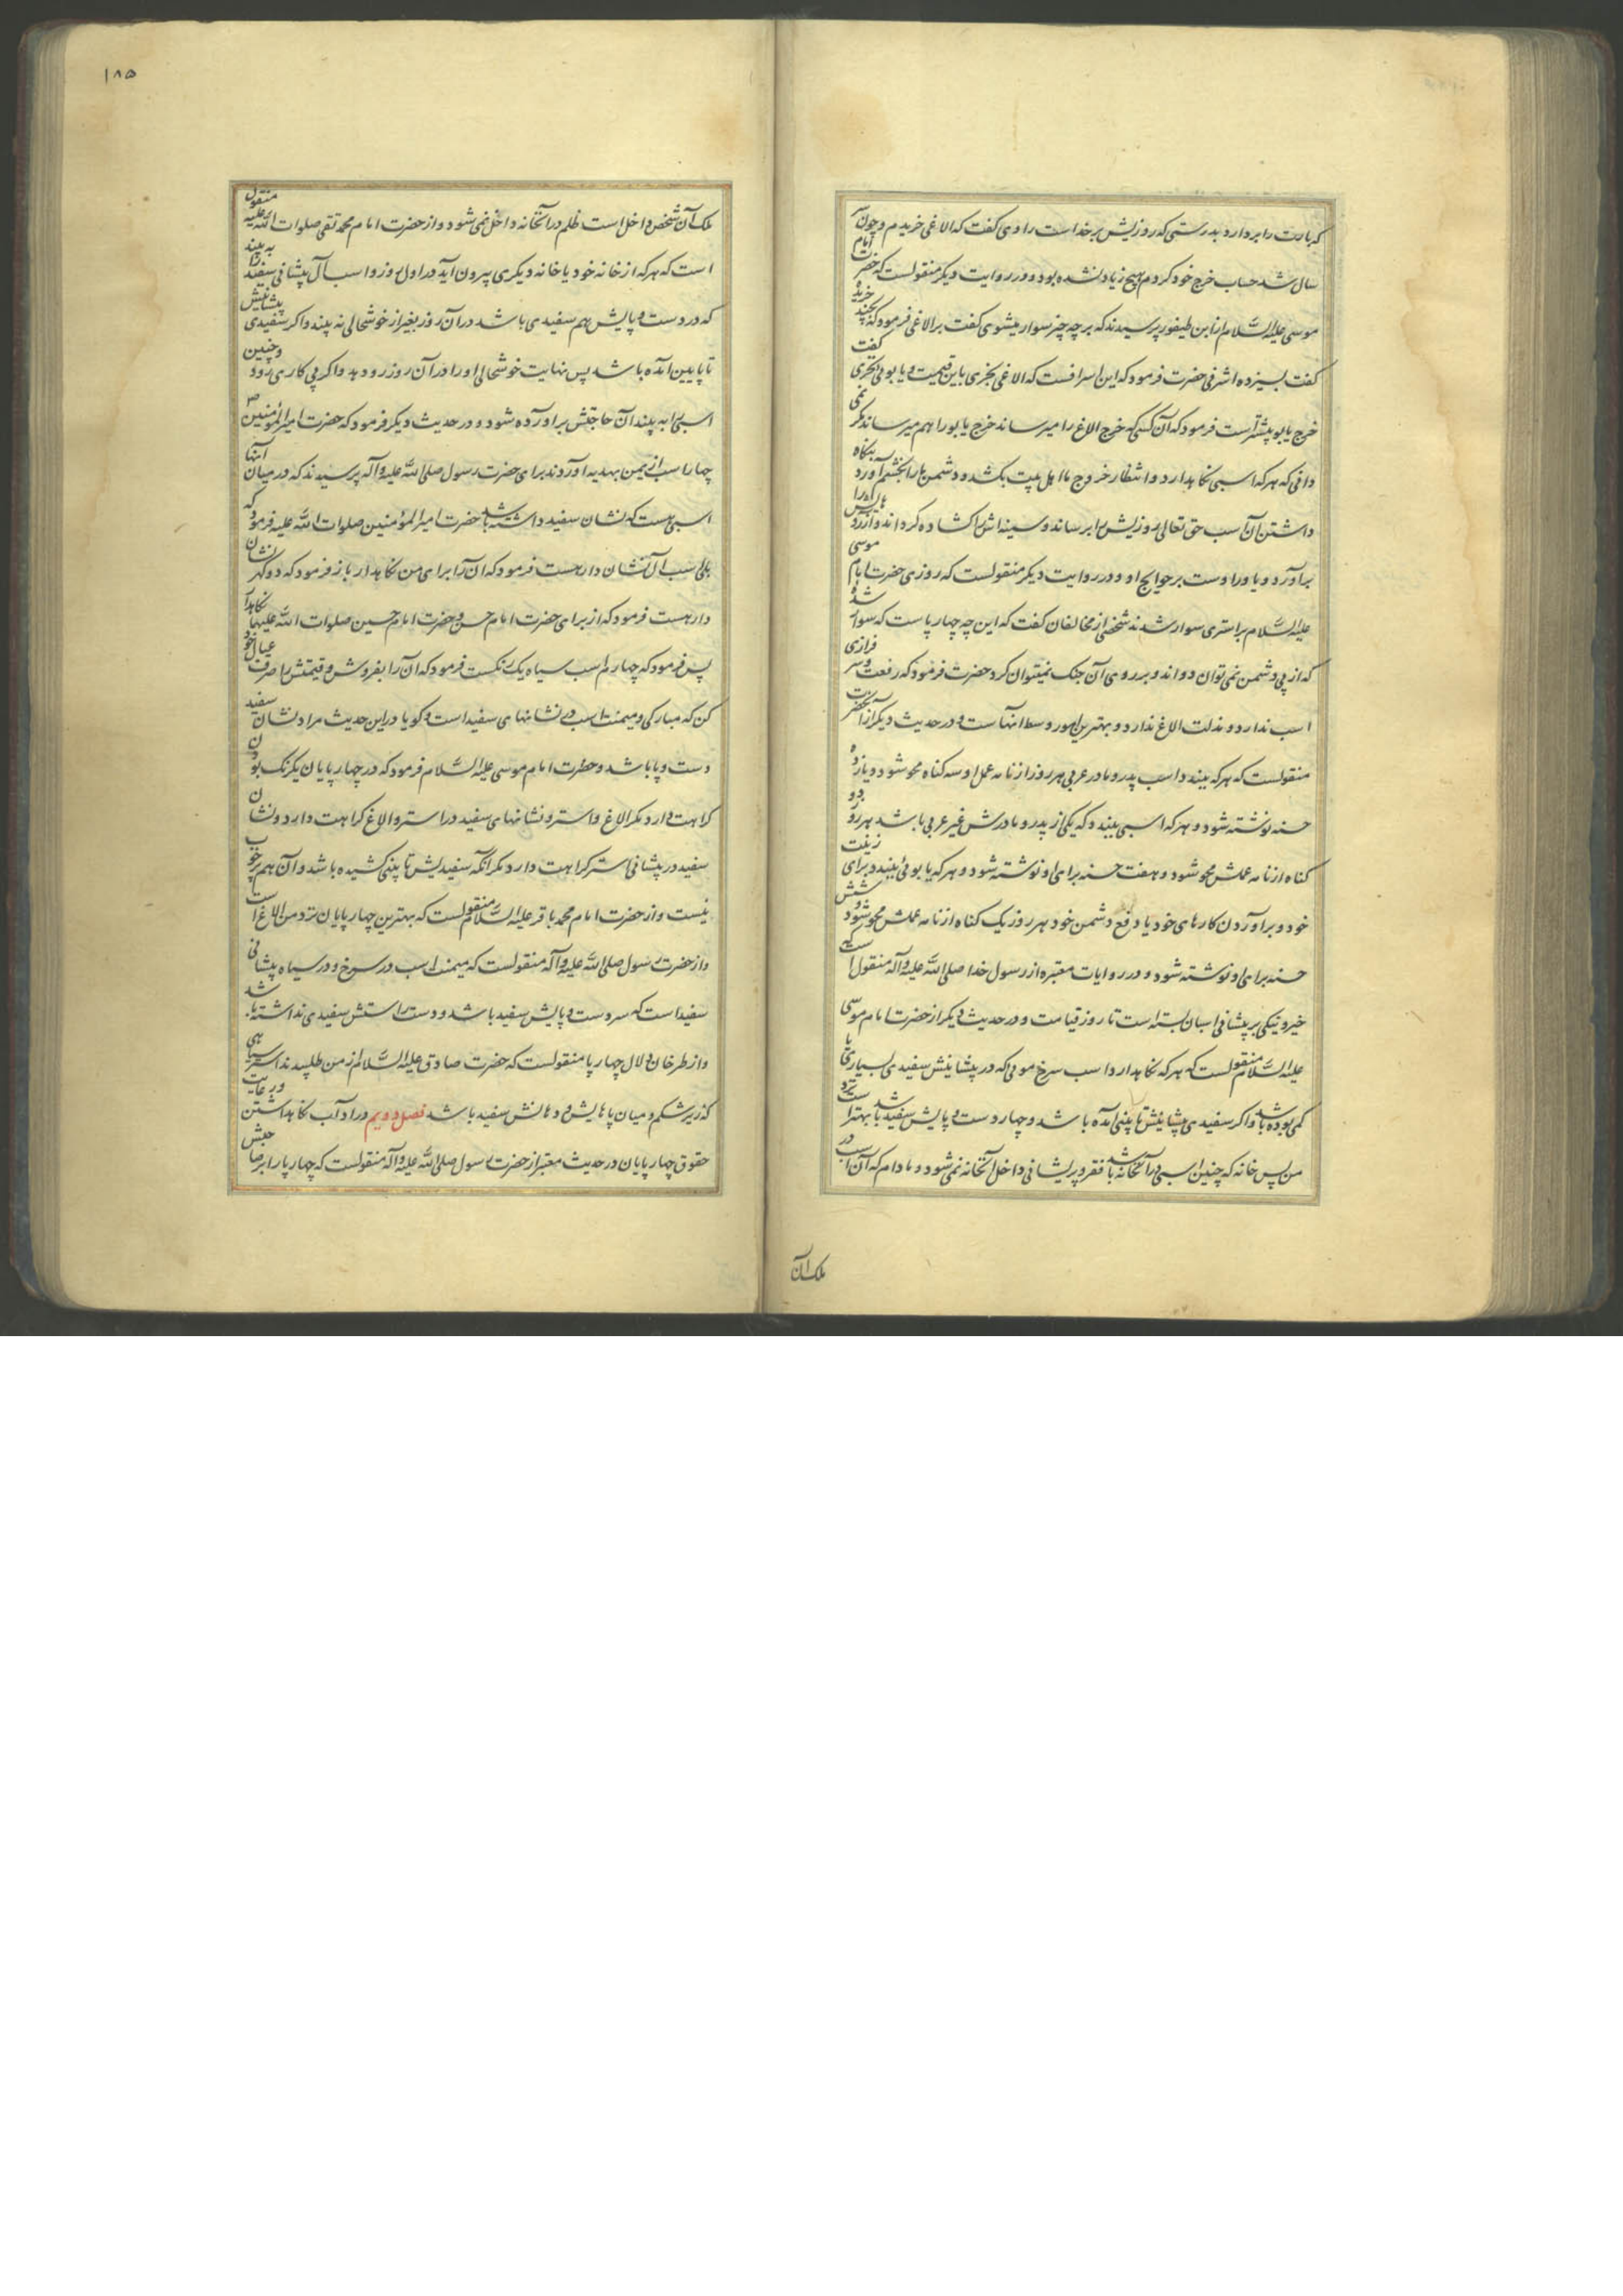 که بارت را بردارد بدرستی که روزیش بر خداست راوی گفت که الاغی خریدم و چون سر
سال شد حساب خرج خود کردم هیچ زیاد نشده بود و در روایت دیگر منقولست که حضرت امام
موسی علیه السّلام از ابن طیفور پرسیدند که بر چه چیز سوار میشوی گفت بر الاغی فرمود که بچند خریدهٔ
گفت بسیزده اشرفی حضرت فرمود که این اسرافست که الاغی بخری باین قیمت و یابوئی نخری گفت
خرج یابو بیشتر است فرمود که آن کسی که خرج الاغ را میرساند خرج یابو را هم میرساند مگر نمی
دانی که هر که اسبی نگاهدارد و انتظار خروج ما اهل بیت بکشد و دشمن ما را بخشم آورد بنگاه
داشتن آن اسب حق تعالی روزیش را برساند و سینه اش را گشاده گرداند و آرزوهایش را
برآورد و یاور اوست بر حوایج او و در روایت دیگر منقولست که روزی حضرت امام موسی
علیه السّلام بر استری سوار شدند شخصی از مخالفان گفت که این چه چهارپاست که سوار شدهٔ
که از پی دشمن نمی توان دواند و بر روی آن جنک نمیتوان کرد حضرت فرمود که رفعت و سرفرازی
اسب ندارد و مذلت الاغ ندارد و بهترین امور وسط انهاست و در حدیث دیگر از آنحضرت
منقولست که هر که ببندد اسب پدر و مادر عربی هر روز از نامه عمل او سه گناه محو شود و یازده
حسنه نوشته شود و هر که اسبی ببندد که یکی از پدر و مادرش غیر عربی باشد هر روز دو
گناه از نامه عملش محو شود و هفت حسنه برای او نوشته شود و هر که یابوئی ببندد برای زینت
خود و برآوردن کارهای خود یا دفع دشمن خود هر روز یک گناه از نامه عملش محو شود و شش
حسنه برای او نوشته شود و در روایات معتبره از رسول خدا صلی الله علیه و آله منقول است که
خیر و نیکی بر پیشانی اسبان بسته است تا روز قیامت و در حدیث دیگر از حضرت امام موسی
علیه السّلام منقولست که هر که نگاهدارد اسب سرخ موئی که در پیشانیش سفیدی بسیاری یا
کمی بوده باشد و اگر سفیدی پیشانیش تا بینی آمده باشد و چهار دست و پایش سفید باشد بهتر است نزد
من پس خانه که چنین اسبی در آنخانه باشد فقر و پریشانی داخل آنخانه نمی شود و مادام که آن اسب در
ملک آن
۱۸۵
ملک آن شخص داخل است ظلم در آنخانه داخل نمی شود و از حضرت امام محمد تقی صلوات الله علیه منقول
است که هر که از خانه خود یا خانه دیگری بیرون آید در اول روز و اسب آل پیشانی سفید را به بیند
که در دست و پایش هم سفیدی باشد در آن روز بغیر از خوشحالی نه بیند و اگر سفیدی پیشانیش
تا پایین آمده باشد پس نهایت خوشحالی او را در آن روز رو دهد و اگر پی کاری رود و چنین
اسبی را به بیند آن حاجتش برآورده شود و در حدیث دیگر فرمود که حضرت امیر المؤمنین ص
چهار اسب از یمن بهدیه آوردند برای حضرت رسول صلی الله علیه و آله پرسیدند که در میان آنها
اسبی هست که نشان سفید داشته باشد حضرت امیر المؤمنین صلوات الله علیه فرمود که
بلی اسب آل نشان دار هست فرمود که آن را برای من نگاهدار باز فرمود که دو کهر نشان
دار هست فرمود که از برای حضرت امام حسن و حضرت امام حسین صلوات الله علیهما نگاهدار
پس فرمود که چهارم اسب سیاه یک رنگست فرمود که آن را بفروش و قیمتش را صرف عیال خود
کن که مبارکی و میمنت اسب در نشانهای سفید است و گویا در این حدیث مراد نشان سفید
دست و پا باشد و حضرت امام موسی علیه السّلام فرمود که در چهارپایان یکرنک بودن
کراهت دارد مگر الاغ و استر و نشانهای سفید در استر و الاغ کراهت دارد و نشان
سفید در پیشانی استر کراهت دارد مگر آنکه سفیدیش تا بینی کشیده باشد و آن هم پر خوب
نیست و از حضرت امام محمد باقر علیه السّلام منقولست که بهترین چهارپایان نزد من الاغ است
و از حضرت رسول صلی الله علیه و آله منقولست که میمنت اسب در سرخ و در سیاه پیشانی
سفید است که سه دست و پایش سفید باشد و دست راستش سفیدی نداشته باشد
و از طرخان دلال چهارپا منقولست که حضرت صادق علیه السّلام از من طلبیدند استر سیاهی
که زیر شکم و میان پاهایش و دهانش سفید باشد فصل دویم در آداب نگاهداشتن و رعایت
حقوق چهارپایان در حدیث معتبر از حضرت رسول صلی الله علیه و آله منقولست که چهارپا را بر صاحبش